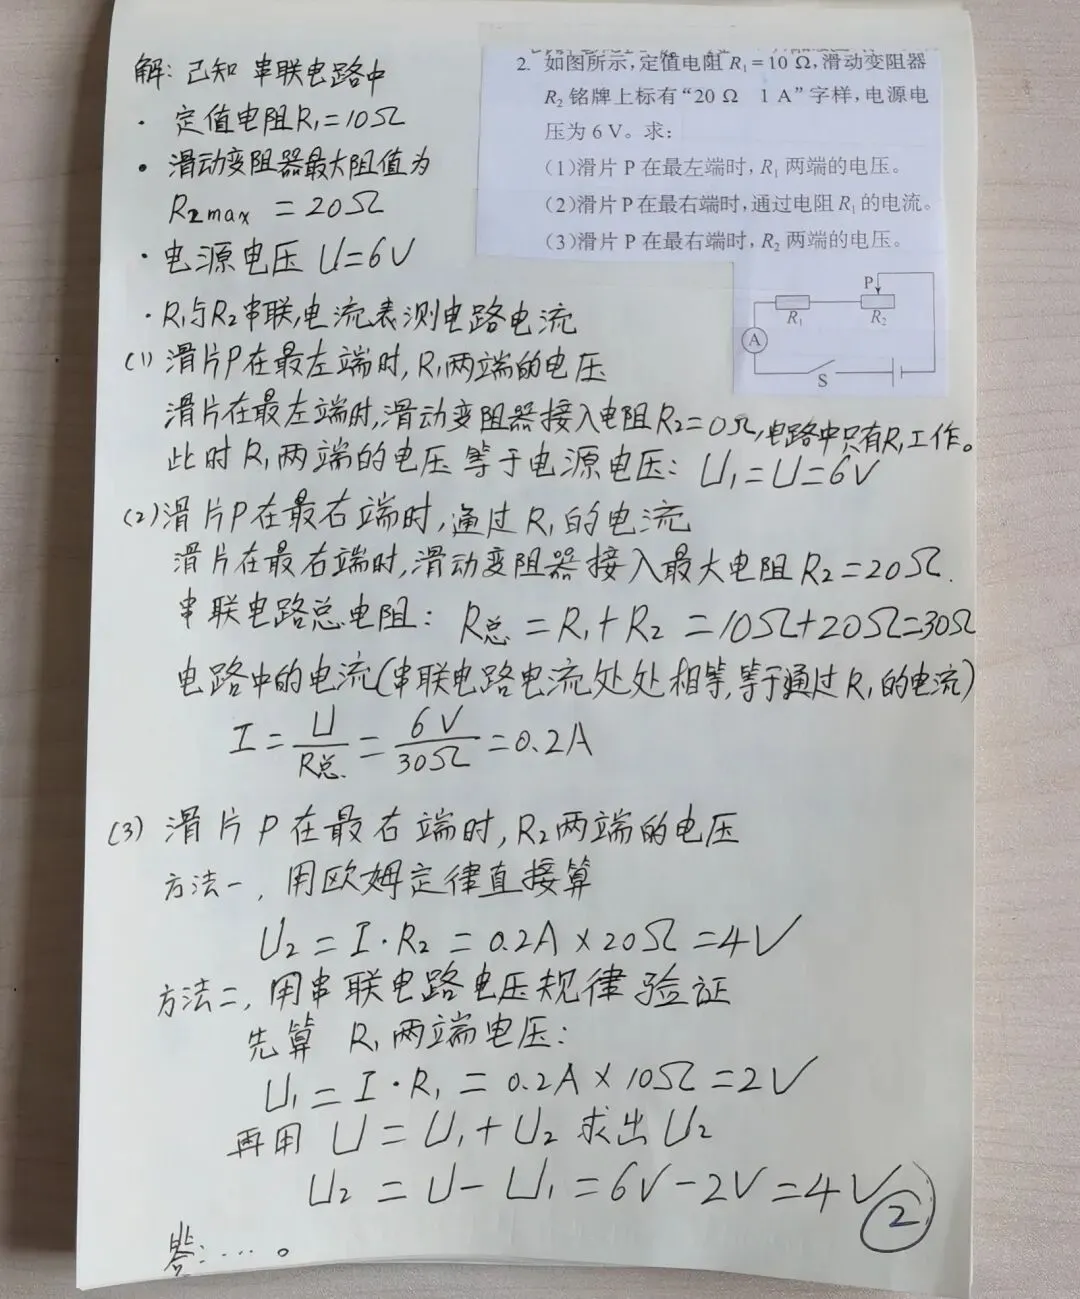 解: 已知 串联电路中
· 定值电阻R₁=10Ω
· 滑动变阻器最大阻值为
R₂max = 20Ω
· 电源电压 U=6V
· R₁与R₂串联,电流表测电路电流
2. 如图所示,定值电阻 R₁=10 Ω,滑动变阻器
R₂ 铭牌上标有“20 Ω 1 A”字样,电源电
压为 6 V。求:
(1)滑片 P 在最左端时,R₁ 两端的电压。
(2)滑片 P 在最右端时,通过电阻 R₁ 的电流。
(3)滑片 P 在最右端时,R₂ 两端的电压。
P
R₁
R₂
A
S
(1) 滑片P在最左端时,R₁两端的电压
滑片在最左端时,滑动变阻器接入电阻R₂=0Ω,电路中只有R₁工作。
此时R₁两端的电压等于电源电压: U₁=U=6V
(2)滑片P在最右端时,通过R₁的电流
滑片在最右端时,滑动变阻器接入最大电阻R₂=20Ω.
串联电路总电阻: R总=R₁+R₂=10Ω+20Ω=30Ω
电路中的电流(串联电路电流处处相等,等于通过R₁的电流)
I=U/R总=6V/30Ω=0.2A
(3) 滑片P在最右端时,R₂两端的电压
方法一,用欧姆定律直接算
U₂=I·R₂=0.2A×20Ω=4V
方法二,用串联电路电压规律验证
先算 R₁两端电压:
U₁=I·R₁=0.2A×10Ω=2V
再用 U=U₁+U₂ 求出U₂
U₂=U-U₁=6V-2V=4V
②
答:...。